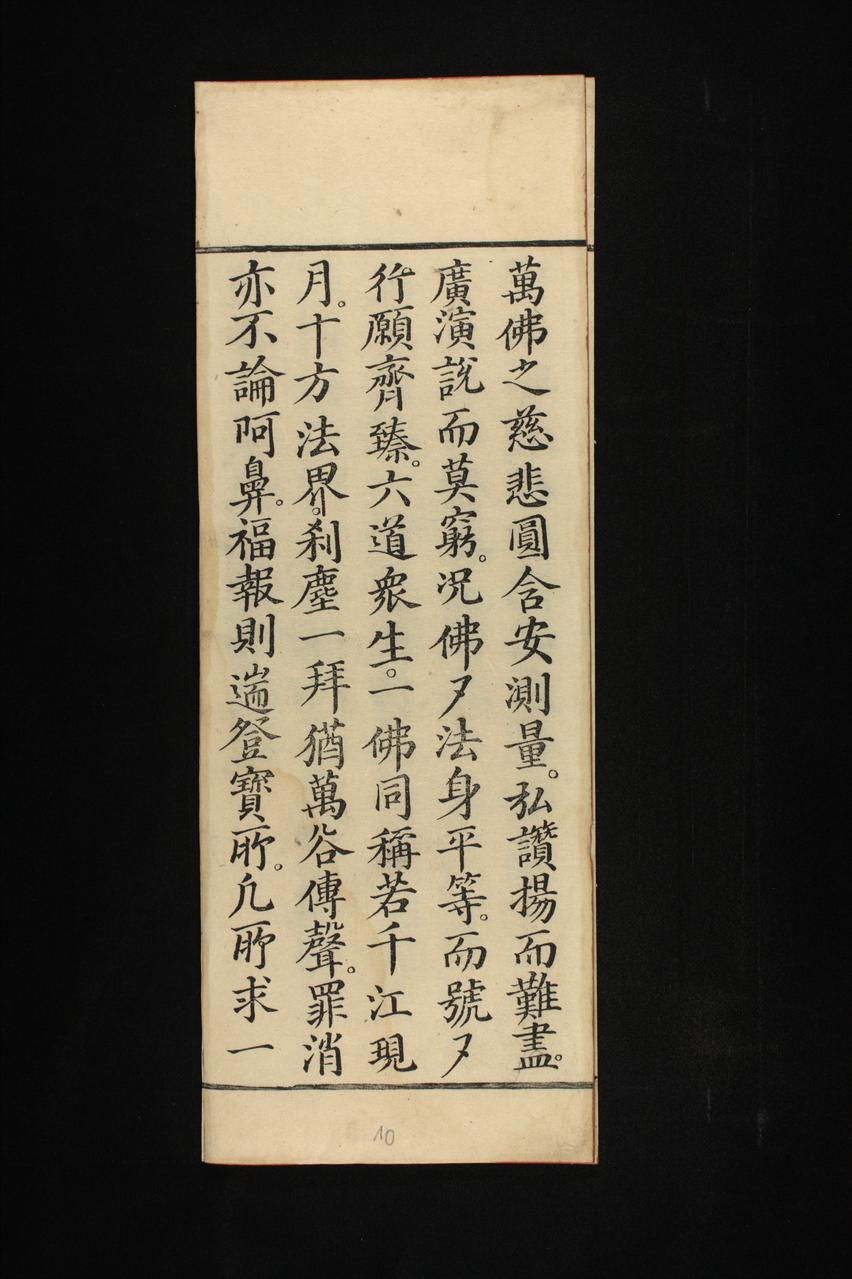 萬佛之慈悲圓含安測量。弘讚揚而難盡。
廣演說而莫窮。况佛〻法身平等。而號〻
行願齊臻。六道衆生。一佛同稱若千江現
月。十方法界。刹塵一拜猶萬谷傳聲。罪消
亦不論阿鼻。福報則遄登寶所。凡所求一
10